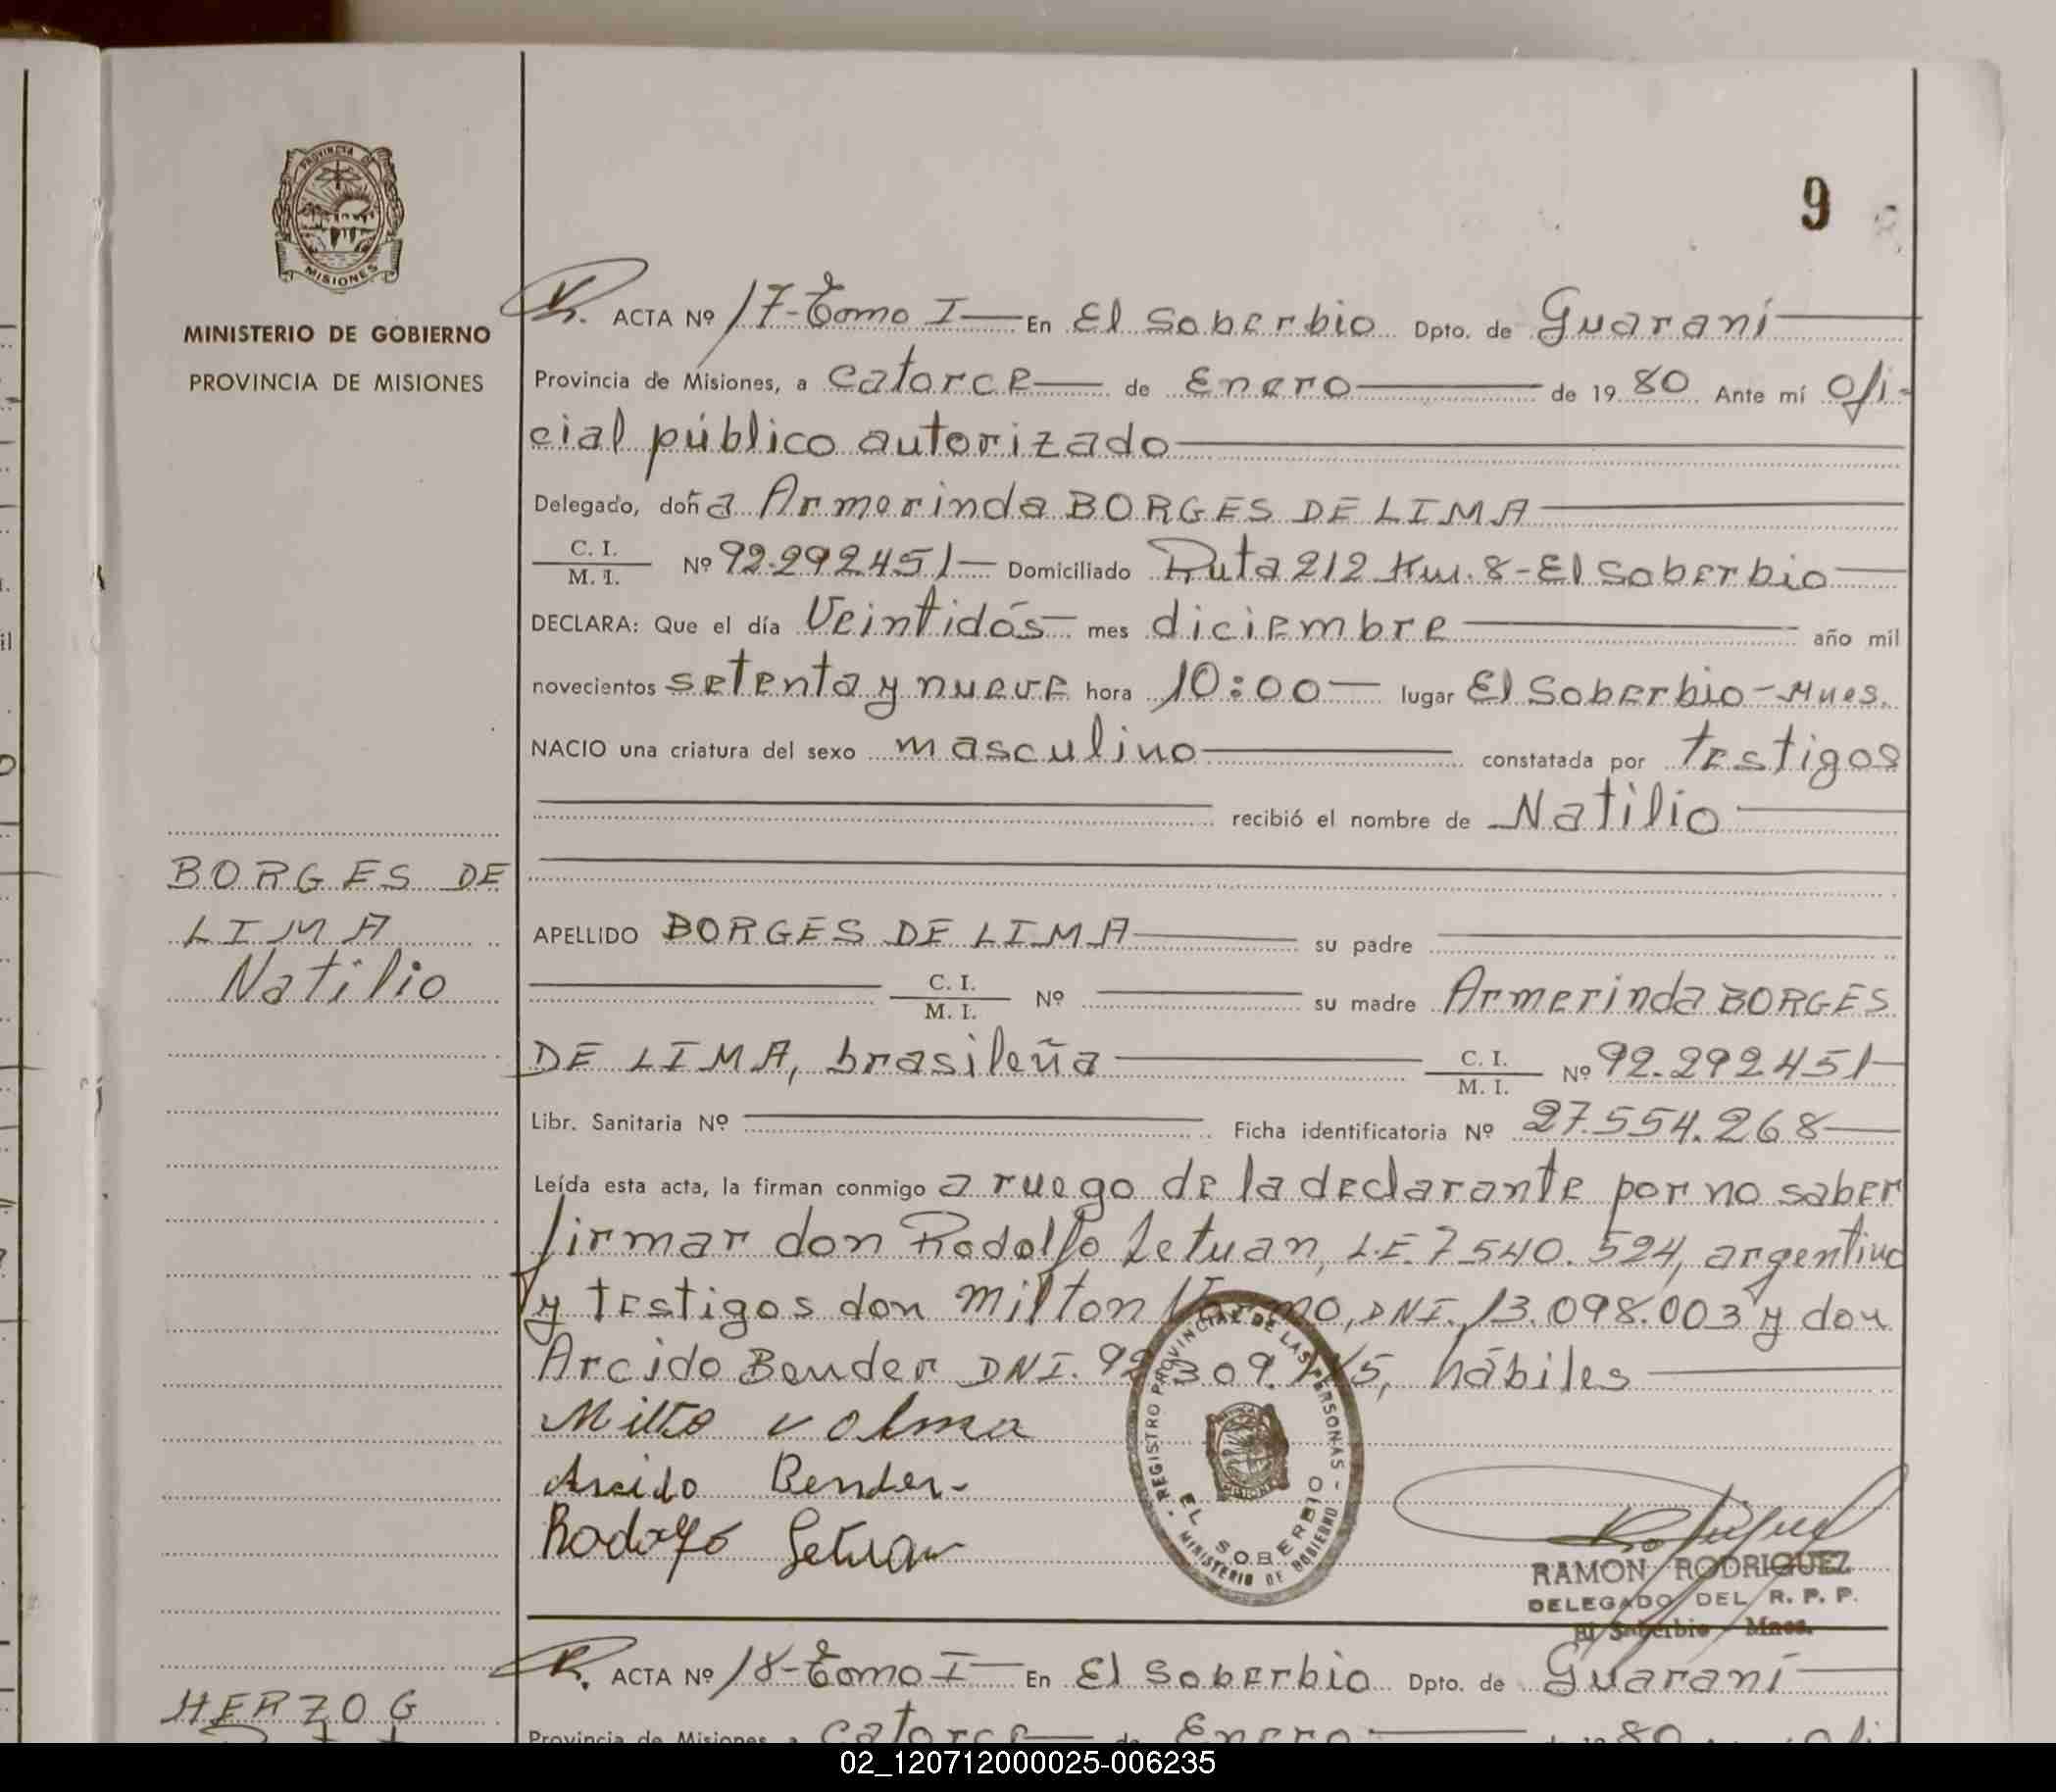 PROVINCIA DE
MISIONES
MINISTERIO DE GOBIERNO
PROVINCIA DE MISIONES
9
ACTA Nº 17-Tomo I En El Soberbio Dpto. de Guaraní
Provincia de Misiones, a Catorce de Enero de 1980 Ante mí Ofi-
cial público autorizado
Delegado, doña Armerinda BORGES DE LIMA
C. I.
M. I. Nº 92.292.451 Domiciliado Ruta 212 Km. 8-El Soberbio
DECLARA: Que el día Veintidós mes diciembre año mil
novecientos setenta y nueve hora 10:00 lugar El Soberbio-Mnes.
NACIO una criatura del sexo masculino constatada por testigos
recibió el nombre de Natilio
BORGES DE
LIMA
Natilio
APELLIDO BORGES DE LIMA su padre
C. I.
M. I. Nº su madre Armerinda BORGES
DE LIMA, brasileña C. I.
M. I. Nº 92.292.451
Libr. Sanitaria Nº Ficha identificatoria Nº 27.554.268
Leída esta acta, la firman conmigo a ruego de la declarante por no saber
firmar don Rodolfo Letuan, L.E. 7.540.524, argentino
y testigos don Milton DNI. 13.098.003 y don
Arcido Bender DNI. hábiles
Milto volma
Arcido Bender
Rodolfo Letuan
REGISTRO PROVINCIAL DE LAS PERSONAS
EL SOBERBIO
MINISTERIO DE GOBIERNO
RAMON RODRIGUEZ
DELEGADO DEL R. P. P.
El Soberbio Mnes.
ACTA Nº 18-Tomo I En El Soberbio Dpto. de Guaraní
HERZOG
Provincia de Misiones, a Catorce de Enero de 1980 Ofi-
02_120712000025-006235